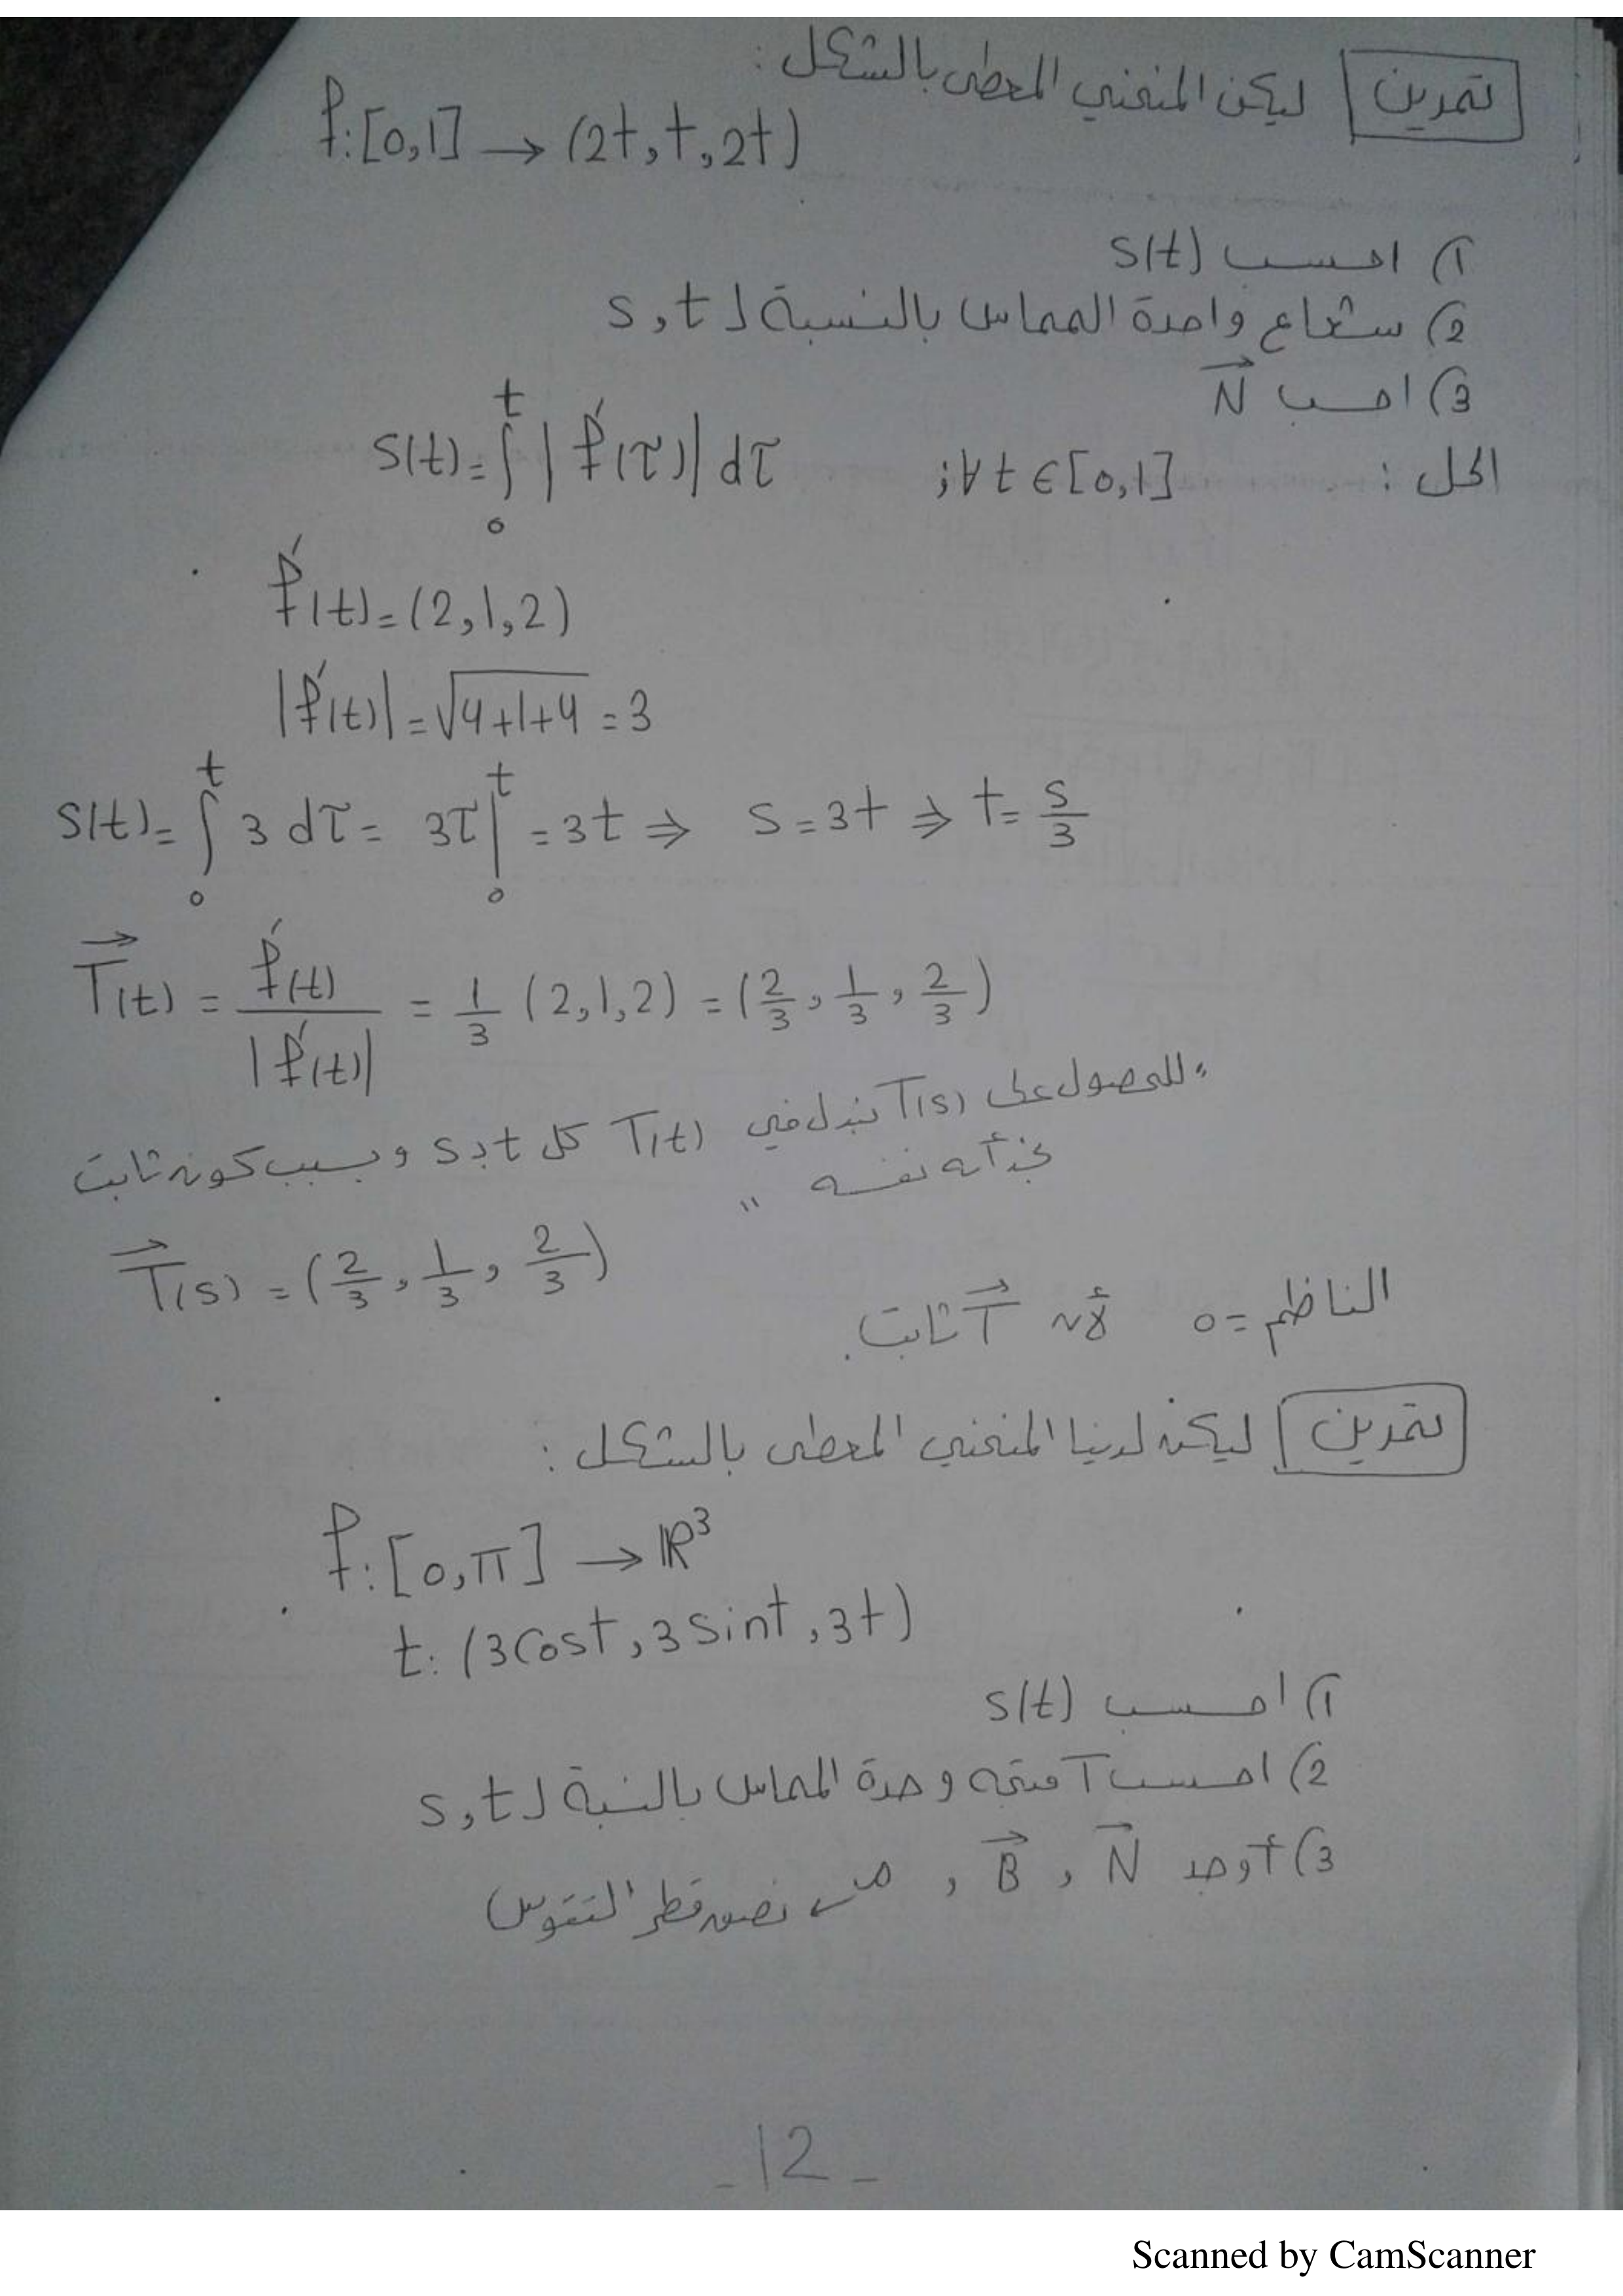 تمرين ليكن المنحني المعطى بالشكل:
f: [0,1] → (2t, t, 2t)
1) احسب s(t)
2) شعاع واحدة المماس بالنسبة لـ s, t
3) احسب N⃗
الحل: s(t) = ∫₀ᵗ |f́(τ)| dτ ; ∀ t ∈ [0,1]
f́(t) = (2, 1, 2)
|f́(t)| = √(4+1+4) = 3
s(t) = ∫₀ᵗ 3 dτ = 3τ |₀ᵗ = 3t ⇒ s = 3t ⇒ t = s/3
T⃗(t) = f́(t) / |f́(t)| = 1/3 (2, 1, 2) = (2/3, 1/3, 2/3)
"للحصول على T(s) نبدل في T(t) كل t بـ s وبسبب كونه ثابت
نجد أنه نفسه"
T⃗(s) = (2/3, 1/3, 2/3)
الناظم = 0 لأن T⃗ ثابت.
تمرين ليكن لدينا المنحني المعطى بالشكل:
f: [0, π] → ℝ³
t: (3cost, 3sint, 3t)
1) احسب s(t)
2) احسب T متجه وحدة المماس بالنسبة لـ s, t
3) أوجد N⃗, B⃗, نصف قطر التقوس
-12-
Scanned by CamScanner